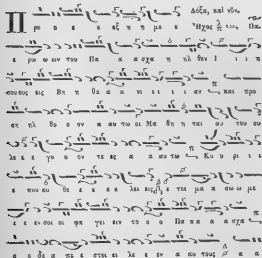 Δόξα, καὶ νῦν.
Π ρο ο ε ε ξη η με Ἦχος Πα
ε ρω ων του Πα α α σχα η ηλ θεν Ι ι ι η
σους εις Βη η θα α α νι ι ι ι αν και προ
ση ηλ θο ον α αυ τω οι Μα θη η ται αυ του ου
λε ε ε γο ο ον τε ες α α α αυ τω Κυ υ ρι ι ε
ε που ου θε ε ε ε ε λει εις ε τοι μα α σω ω με
ε ε εν σοι οι φα γει ειν το ο ο Πα α α α σχα
α ο δε α πε ε στει ει λε ε εν α αυ τους α α